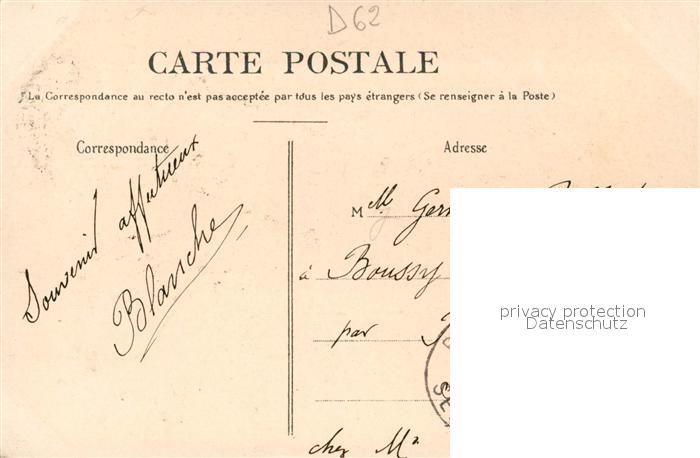 D62
CARTE POSTALE
La Correspondance au recto n'est pas acceptée par tous les pays étrangers (Se renseigner à la Poste)
Correspondance
Souvenir affectueux
Blanche
Adresse
M
à Boussy
par
chez
privacy protection
Datenschutz